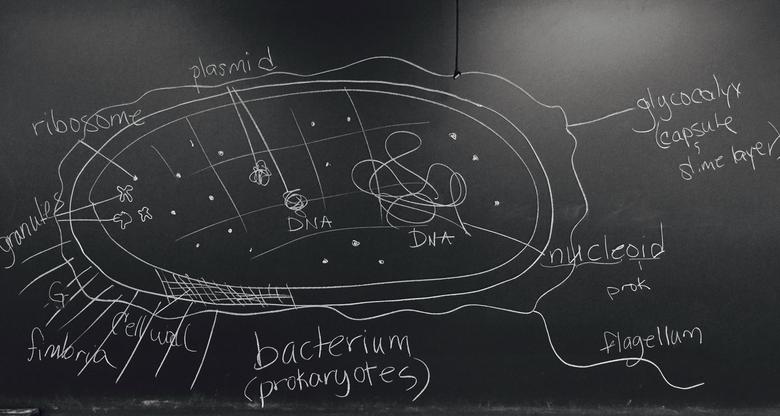 plasmid
ribosome
glycocalyx
(capsule
slime layer)
granules
DNA
DNA
nucleoid
prok
G
fimbria
Cell wall
flagellum
bacterium
(prokaryotes)